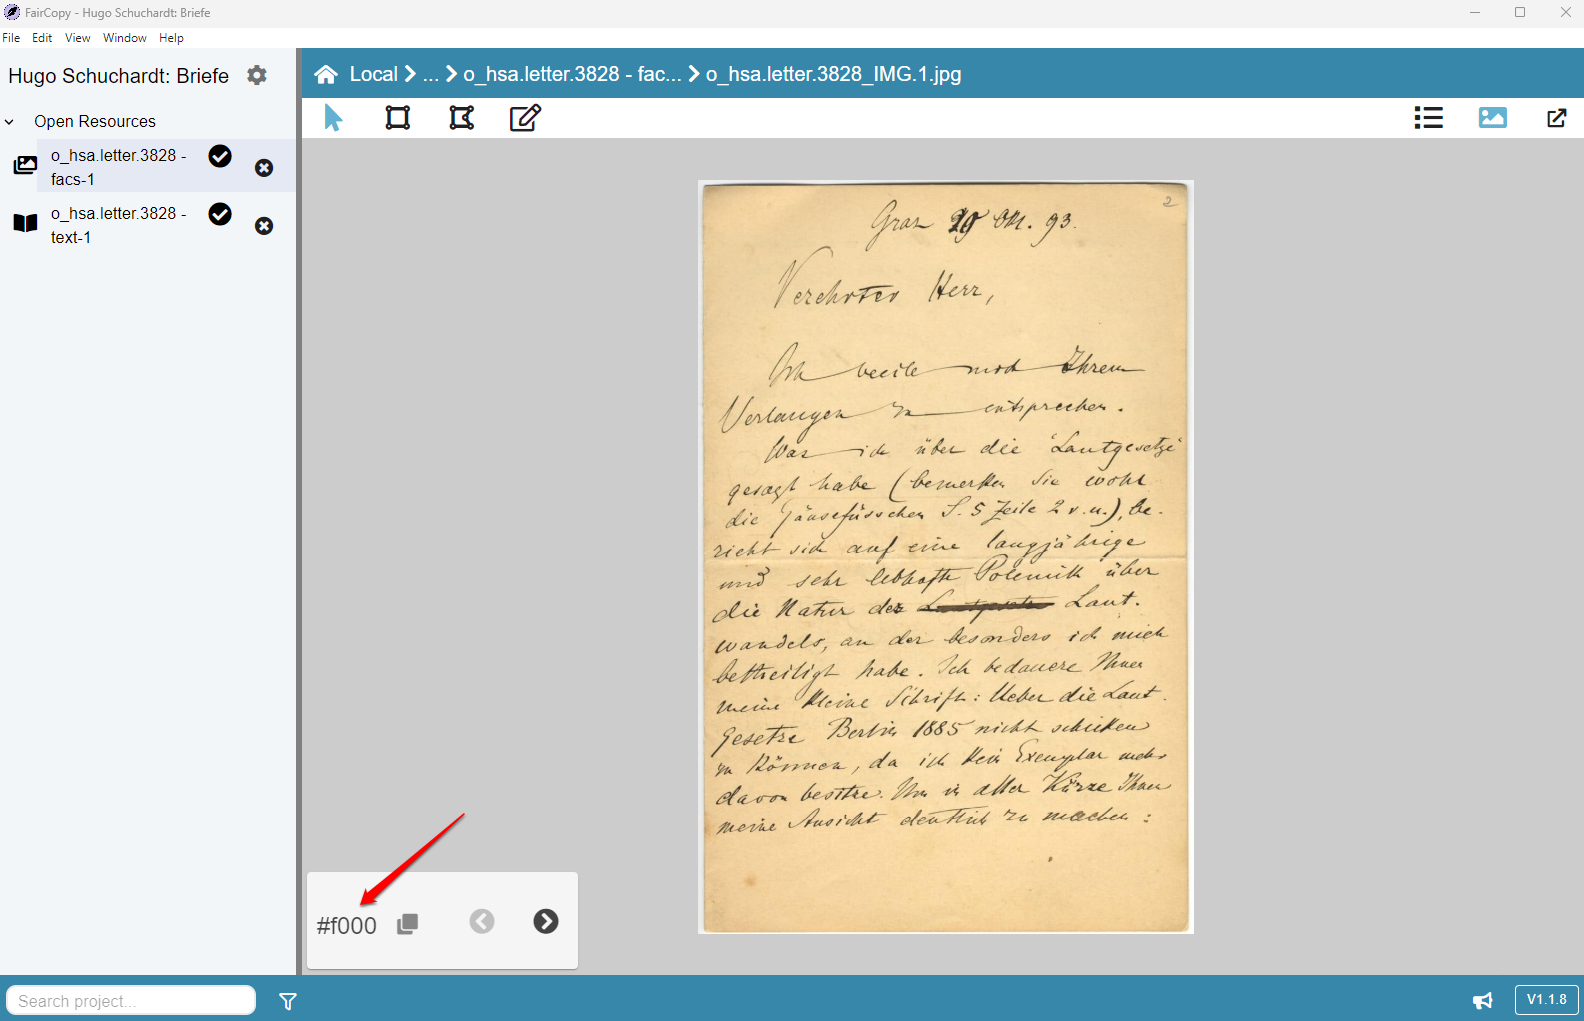 FairCopy - Hugo Schuchardt: Briefe
File Edit View Window Help
Hugo Schuchardt: Briefe
Open Resources
o_hsa.letter.3828 -
facs-1
o_hsa.letter.3828 -
text-1
Local ... o_hsa.letter.3828 - fac... o_hsa.letter.3828_IMG.1.jpg
2
Graz 29 Okt. 93.
Verehrter Herr,
Ich beeile mich Ihrem
Verlangen zu entsprechen.
Was ich über die 'Lautgesetze'
gesagt habe (bemerken Sie wohl
die Gänsefüsschen S. 5 Zeile 2 v. u.), be-
zieht sich auf eine langjährige
und sehr lebhafte Polemik über
die Natur des Lautgesetz Laut-
wandels, an der besonders ich mich
betheiligt habe. Ich bedauere Ihnen
meine kleine Schrift: Ueber die Laut-
gesetze Berlin 1885 nicht schicken
zu können, da ich kein Exemplar mehr
davon besitze. Um in aller Kürze Ihnen
meine Ansicht deutlich zu machen:
#f000
Search project...
V1.1.8